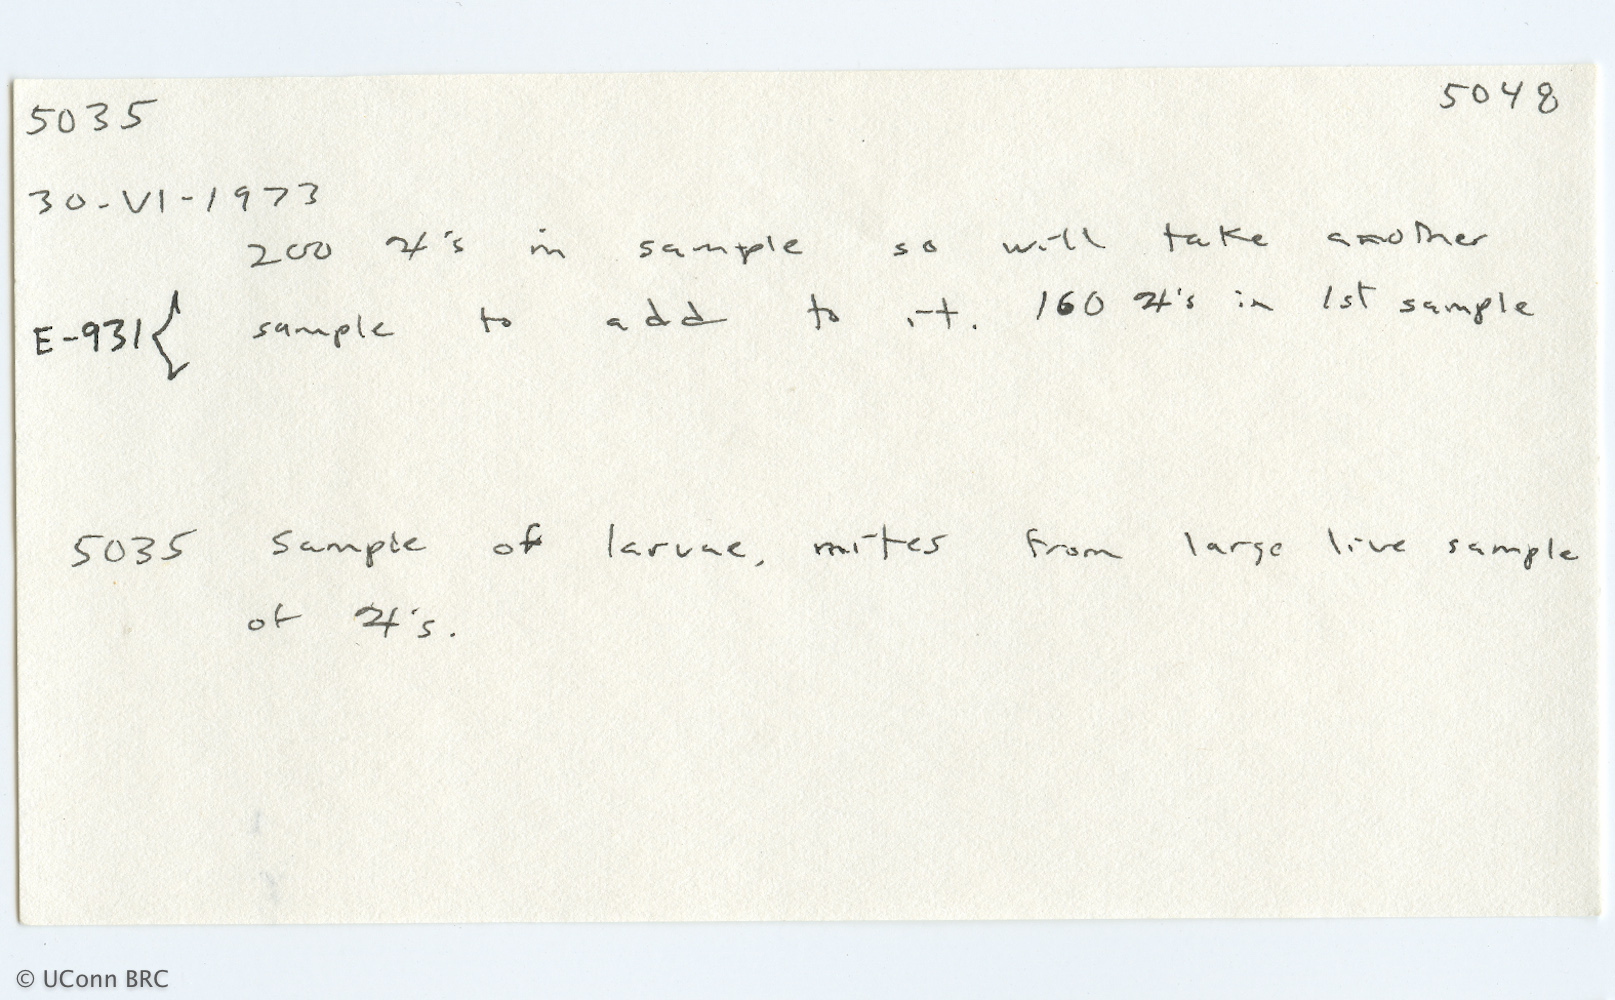 5035 5048
30-VI-1973
200 ♃'s in sample so will take another
E-931{ sample to add to it. 160 ♃'s in 1st sample
5035 Sample of larvae, mites from large live sample
of ♃'s.
© UConn BRC